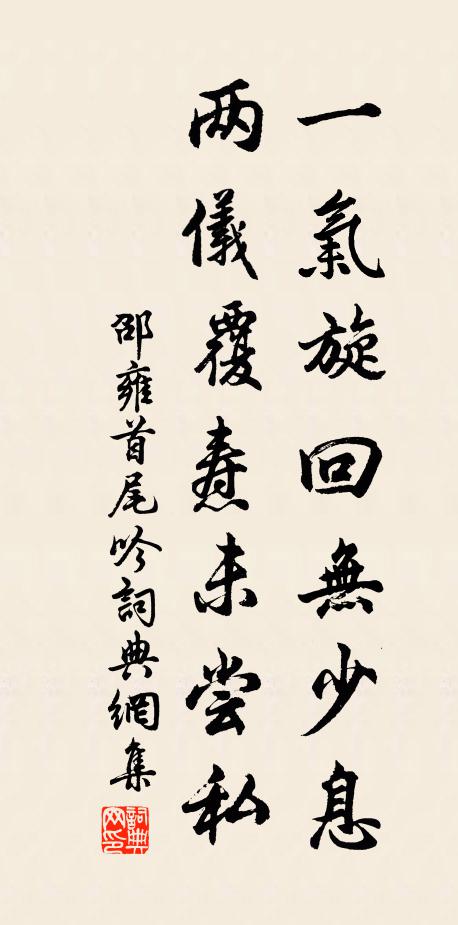 一氣旋回無少息
两儀覆焘未尝私
邵雍首尾吟詞典網集
詞典网印